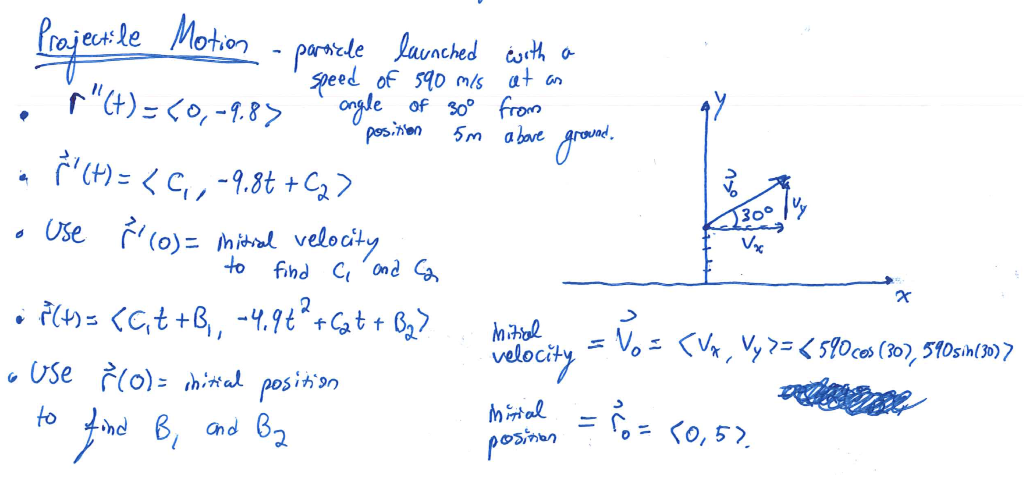 Projectile Motion - particle launched with a
speed of 590 m/s at an
angle of 30° from
position 5m above ground.
• r"(t) = <0, -9.8>
• r⃗'(t) = <C₁, -9.8t + C₂>
• Use r⃗'(0) = initial velocity
to find C₁ and C₂
• r⃗(t) = <C₁t + B₁, -4.9t² + C₂t + B₂>
• Use r⃗(0) = initial position
to find B₁ and B₂
y
V⃗₀
30°
Vy
Vx
x
Initial
velocity = V⃗₀ = <Vx, Vy> = <590cos(30), 590sin(30)>
Initial
position = r⃗₀ = <0, 5>.